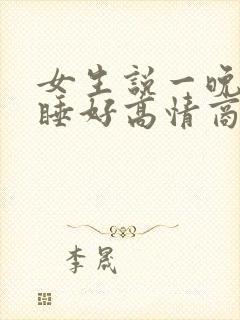 女生説一晚
睡好高情商
李晟